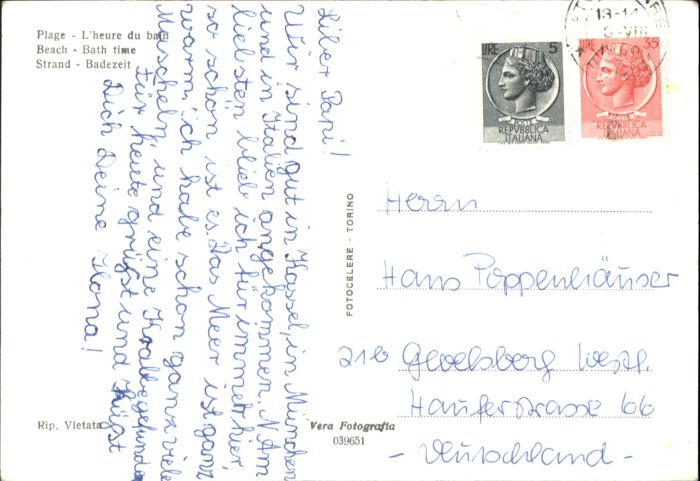 Plage - L'heure du bain
Beach - Bath time
Strand - Badezeit
Lieber Papi!
Wir sind gut in Kassel, in München
und in Italien angekommen. N Am
liebsten blieb ich für immer hier,
so schön ist es. Das Meer ist ganz
warm, ich habe schon ganz viele
Muscheln und eine Krabbe gefunden
Für heute grüßt und küßt
Dich Deine Ilona!
Rip. Vietata
FOTOCELERE - TORINO
Vera Fotografia
039651
LIRE 5
POSTE
REPVBBLICA
ITALIANA
LIRE 35
POSTE
REPVBBLICA
ITALIANA
Herrn
Hans Poppenhäuser
21b Gevelsberg Westf.
Hauferstrasse 66
- Deutschland -